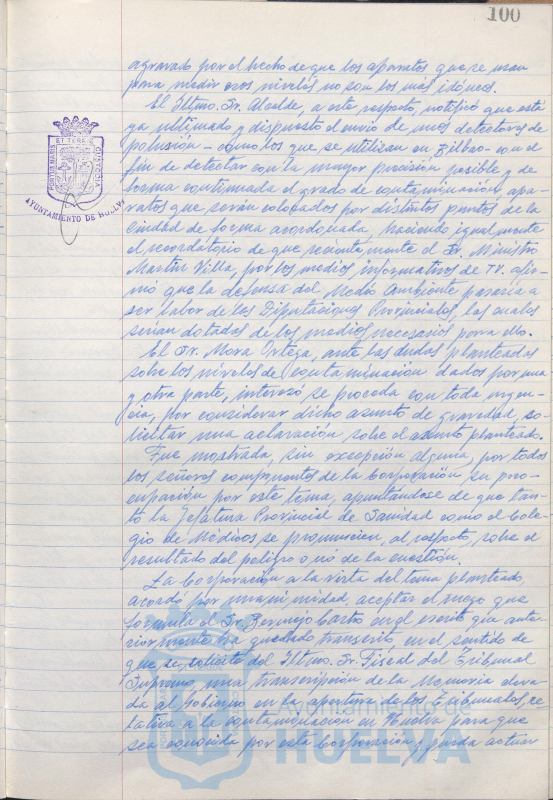 100
agravado por el hecho de que los aparatos que se usan
para medir esos niveles no son los más idóneos.
El Iltmo. Sr. Alcalde, a este respecto, notificó que está
ya ultimado y dispuesto el envío de unos detectores de
polusión - como los que se utilizan en Bilbao - con el
fin de detectar con la mayor precisión posible y de
forma continuada el grado de contaminación, apa-
ratos que serán colocados por distintos puntos de la
ciudad de forma acordonada, haciendo igualmente
el recordatorio de que recientemente el Sr. Ministro
Martín Villa, por los medios informativos de TV. afir-
mó que la defensa del Medio Ambiente pasaría a
ser labor de las Diputaciones Provinciales, las cuales
serían dotadas de los medios necesarios para ello.
El Sr. Mora Ortega, ante las dudas planteadas
sobre los niveles de contaminación dados por una
y otra parte, interesó se proceda con toda urgen-
cia, por considerar dicho asunto de gravedad, so-
licitar una aclaración sobre el asunto planteado.
Fue mostrada, sin excepción alguna, por todos
los señores componentes de la Corporación su preo-
cupación por este tema, apuntándose de que tan-
to la Jefatura Provincial de Sanidad como el Cole-
gio de Médicos se pronuncien, al respecto, sobre el
resultado del peligro o nó de la cuestión.
La Corporación a la vista del tema planteado,
acordó por unanimidad, aceptar el ruego que
formula el Sr. Bermejo Castro en el escrito que ante-
riormente ha quedado transcrito, en el sentido de
que se solicite del Iltmo. Sr. Fiscal del Tribunal
Supremo, una transcripción de la Memoria eleva-
da al Gobierno en la apertura de los Tribunales, re-
lativa a la contaminación en Huelva para que
sea conocida por esta Corporación y pueda actuar
PORTUS MARIS
ET TERRÆ
CUSTODIA
AYUNTAMIENTO DE HUELVA
Ayuntamiento de
HUELVA